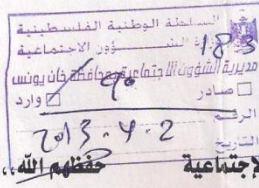 السلطة الوطنية الفلسطينية
الشؤون الاجتماعية
مديرية الشؤون الاجتماعية بمحافظة خان يونس
صادر
وارد
الرقم
2013
التاريخ
لإجتماعية حفظهم الله،،